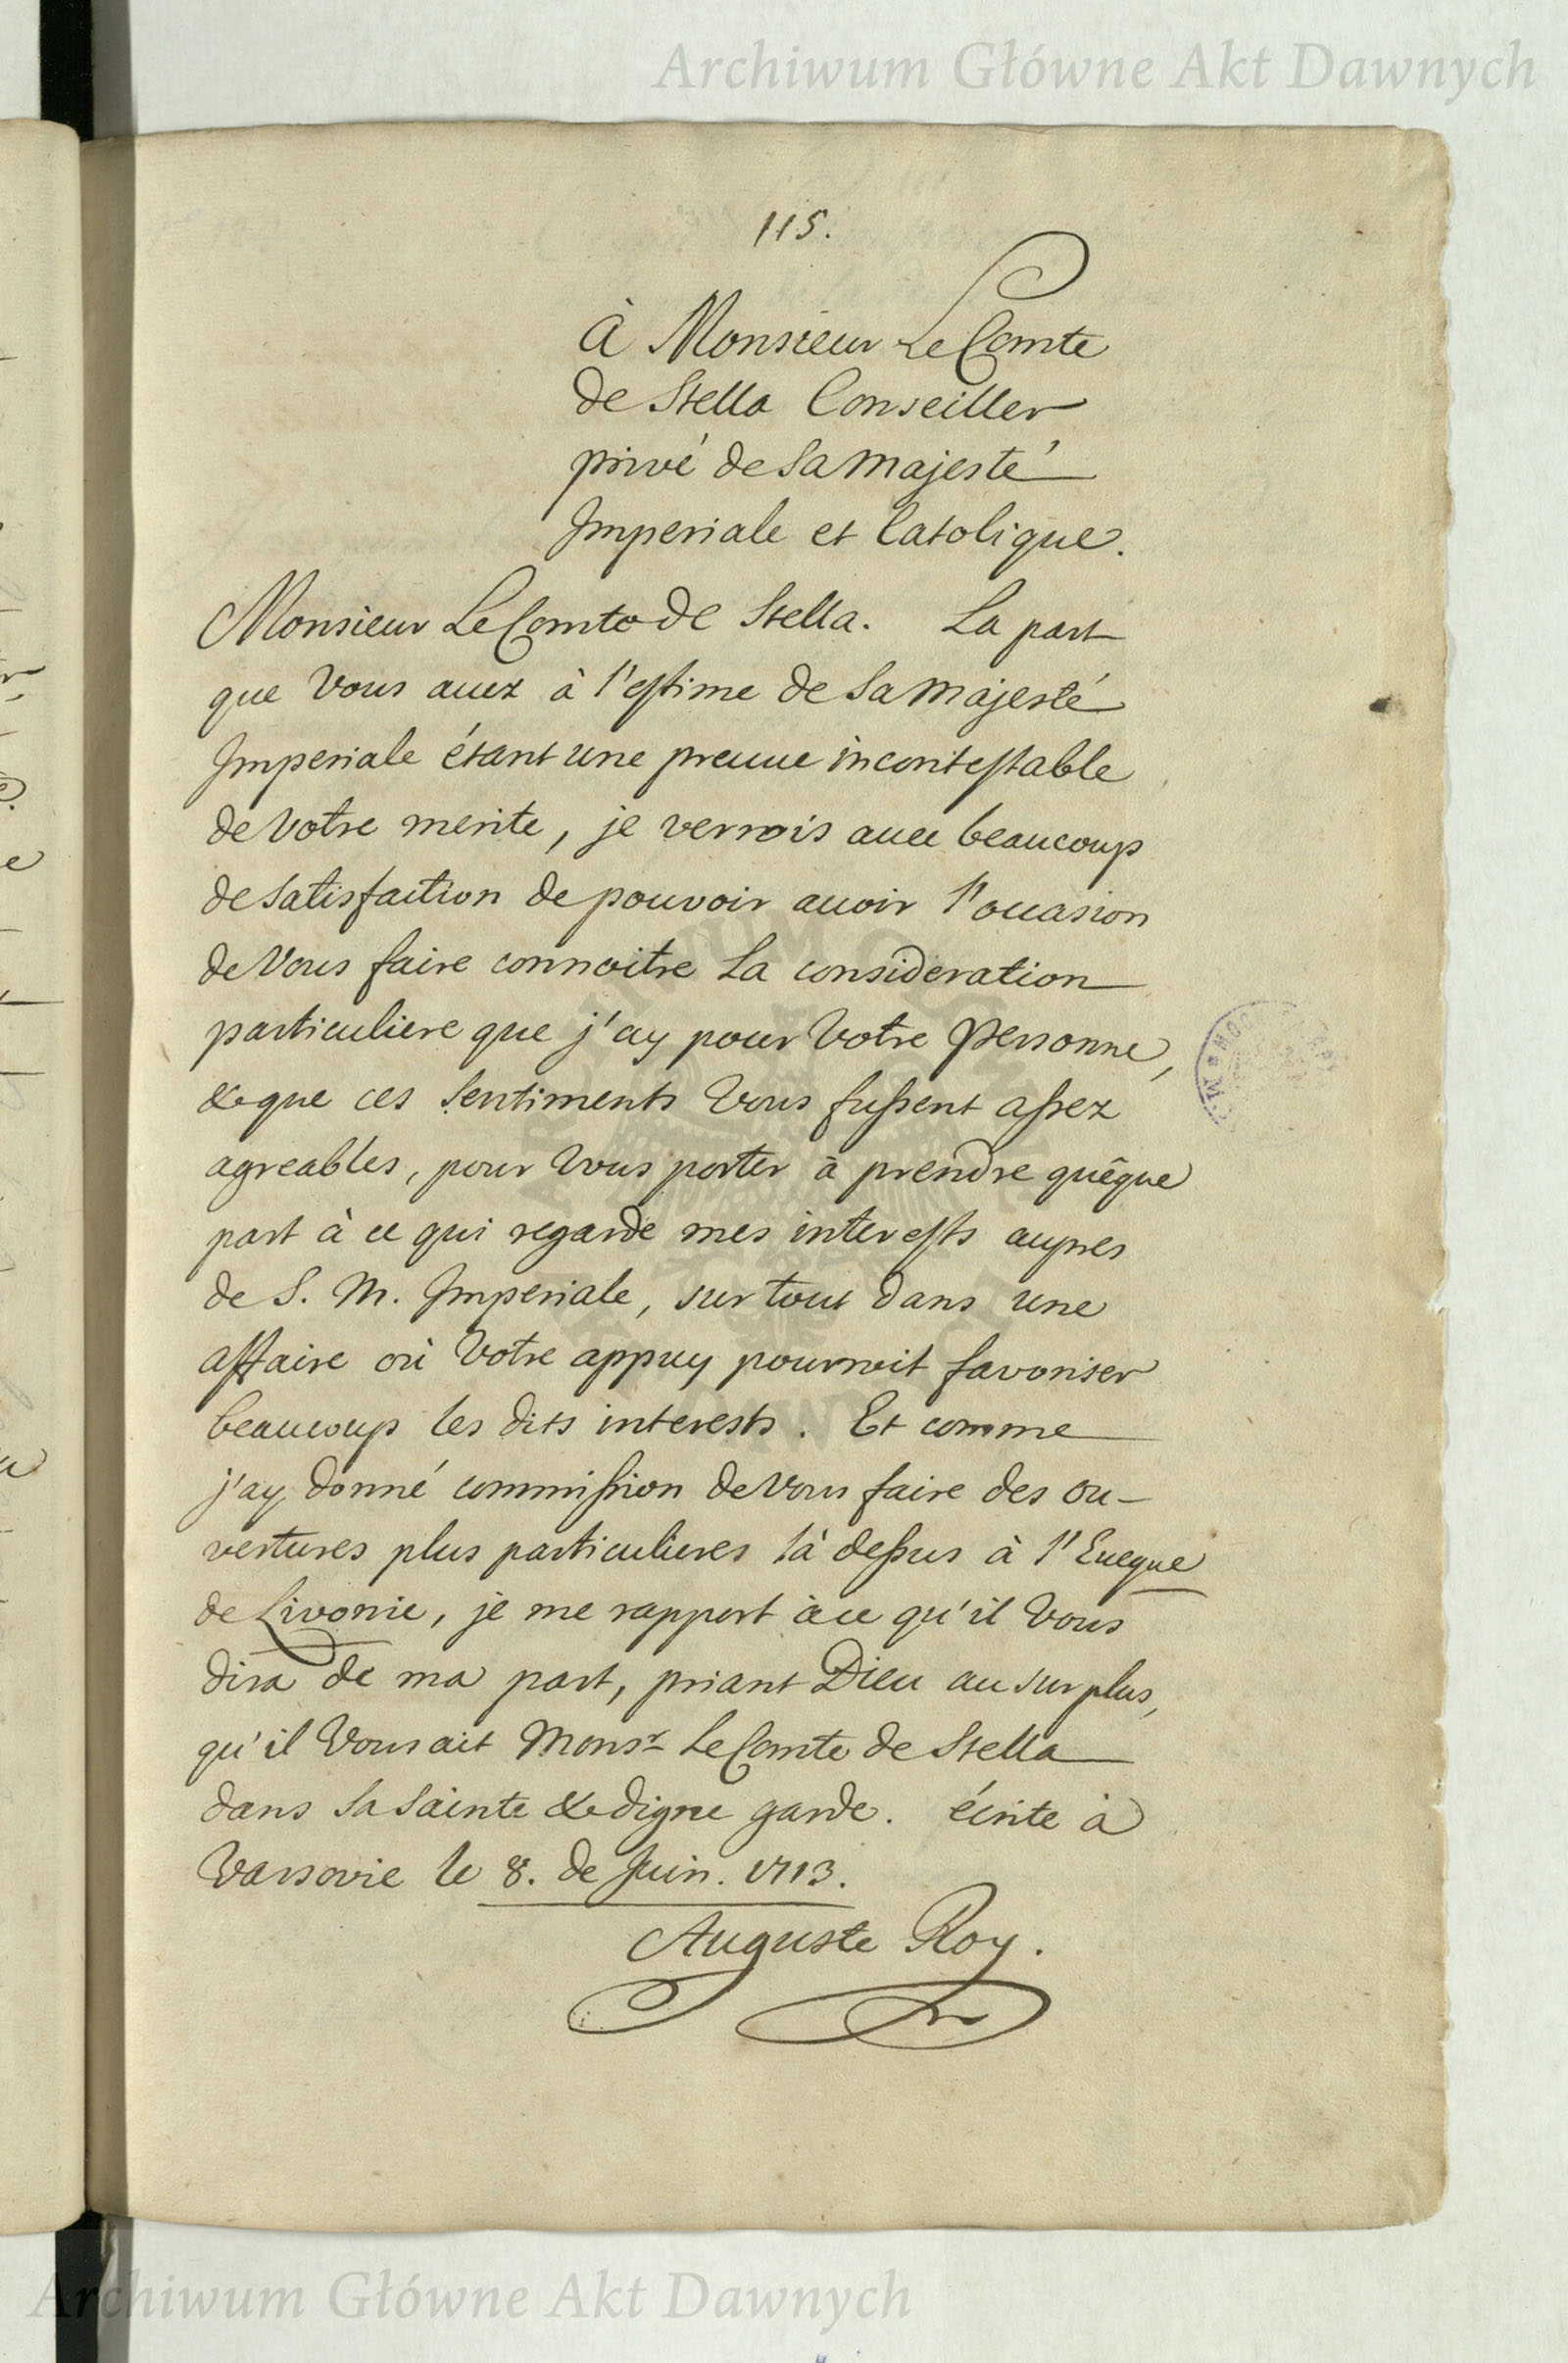 Archiwum Główne Akt Dawnych
115.
à Monsieur Le Comte
de Stella Conseiller
privé de Sa Majesté
Imperiale et Catolique.
Monsieur Le Comte de Stella. La part
que Vous avez à l'estime de Sa Majesté
Imperiale étant une preuue incontestable
de Votre merite, je verrois auec beaucoup
de Satisfaction de pouvoir auoir l'occasion
de Vous faire connoitre La consideration
particuliere que j'ay pour Votre Personne,
& que ces Sentiments Vous fussent assez
agreables, pour Vous porter à prendre quêque
part à ce qui regarde mes interests aupres
de S. M. Imperiale, sur tout dans une
affaire où Votre appuy pourroit favoriser
beaucoup les dits interests. Et comme
j'ay donné commission de Vous faire des ou-
vertures plus particulieres là dessus à l'Eueque
de Livonie, je me rapport à ce qu'il Vous
dira de ma part, priant Dieu au surplus,
qu'il Vous ait Monsr Le Comte de Stella
dans Sa Sainte & digne garde. écrite à
Varsovie le 8. de Juin. 1713.
Auguste Roy.
Archiwum Główne Akt Dawnych